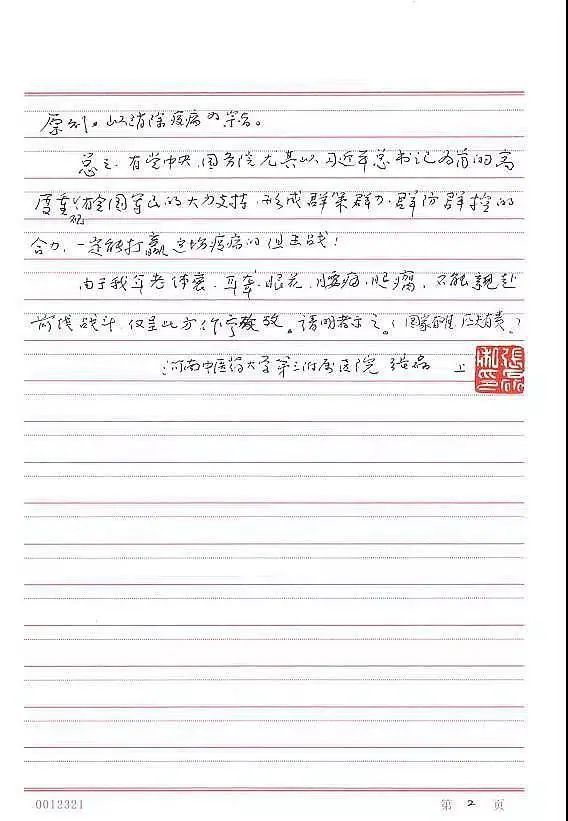 原则。以消除疫病为宗旨。
总之，有党中央、国务院尤其以习近平总书记为首的高
度重视，有全国军民的大力支持，形成群策群力，群防群控的
合力，一定能打赢这场疫病的阻击战！
由于我年老体衰、耳聋、眼花、腰痛、腿痛，不能亲赴
前线战斗，仅呈此方作。请明者示之。（国家有难，匹夫有责。）
河南中医药大学第三附属医院 张磊 上
张磊私印
0012321
第 2 页